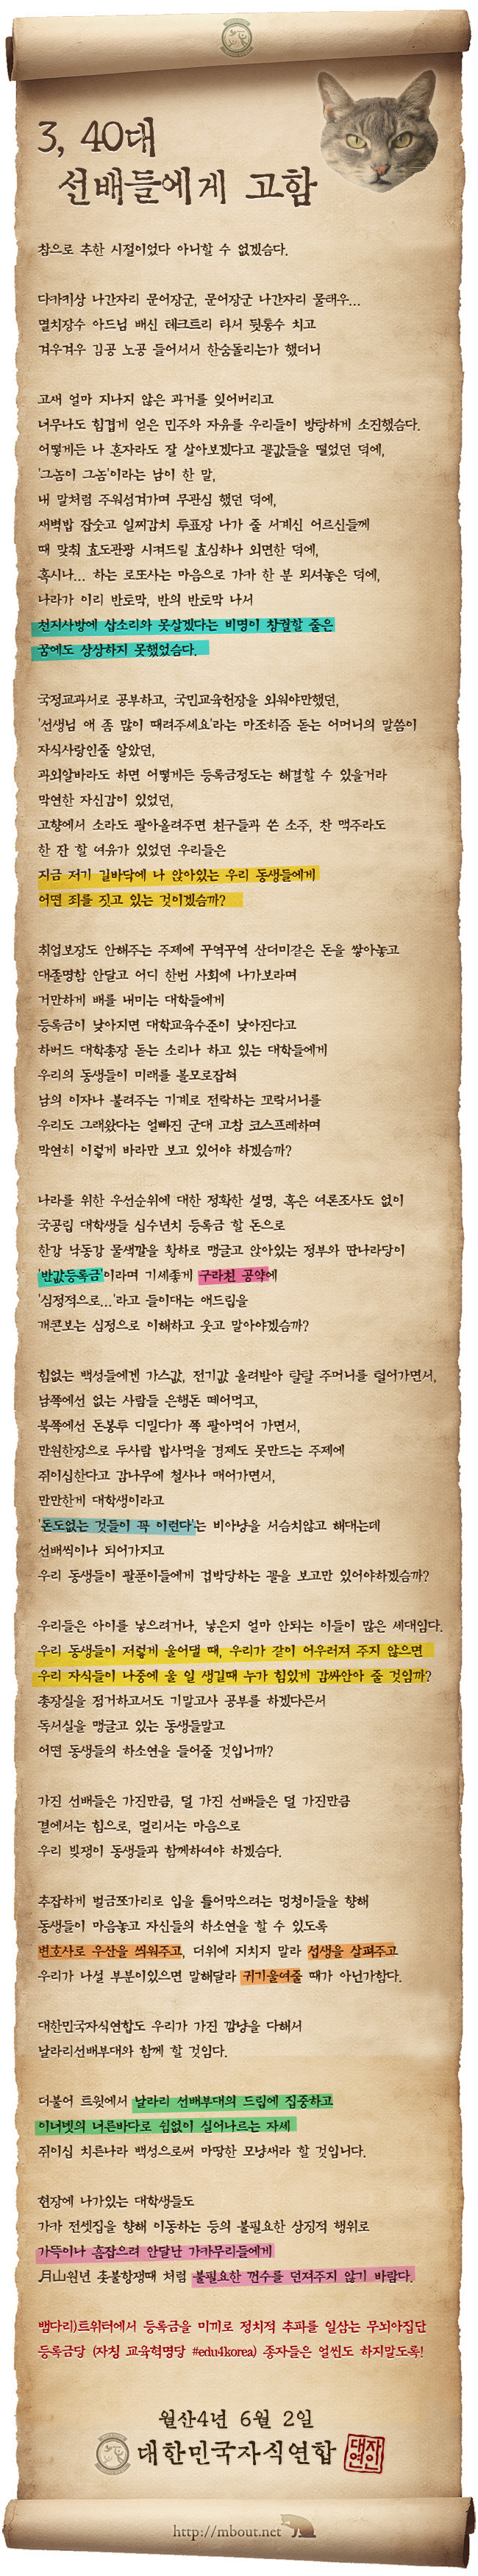 3, 40대
선배들에게 고함
참으로 추한 시절이었다 아니할 수 없겠습다.
다카키상 나간자리 문어장군, 문어장군 나간자리 물태우...
멸치장수 아드님 배신 테크트리 타서 뒷통수 치고
겨우겨우 김공 노공 들어서서 한숨돌리는가 했더니
고새 얼마 지나지 않은 과거를 잊어버리고
너무나도 힘겹게 얻은 민주와 자유를 우리들이 방탕하게 소진했습다.
어떻게든 나 혼자라도 잘 살아보겠다고 꼴값들을 떨었던 덕에,
'그놈이 그놈'이라는 남이 한 말,
내 말처럼 주워섬겨가며 무관심 했던 덕에,
새벽밥 잡숫고 일찌감치 투표장 나가 줄 서계신 어르신들께
때 맞춰 효도관광 시켜드릴 효심하나 외면한 덕에,
혹시나... 하는 로또사는 마음으로 가카 한 분 뫼셔놓은 덕에,
나라가 이리 반토막, 반의 반토막 나서
천지사방에 삽소리와 못살겠다는 비명이 창궐할 줄은
꿈에도 상상하지 못했었습다.
국정교과서로 공부하고, 국민교육헌장을 외워야만했던,
'선생님 애 좀 많이 때려주세요'라는 마조히즘 돋는 어머니의 말씀이
자식사랑인줄 알았던,
과외알바라도 하면 어떻게든 등록금정도는 해결할 수 있을거라
막연한 자신감이 있었던,
고향에서 소라도 팔아올려주면 친구들과 쓴 소주, 찬 맥주라도
한 잔 할 여유가 있었던 우리들은
지금 저기 길바닥에 나 앉아있는 우리 동생들에게
어떤 죄를 짓고 있는 것이겠습까?
취업보장도 안해주는 주제에 꾸역꾸역 산더미같은 돈을 쌓아놓고
대졸명함 안달고 어디 한번 사회에 나가보라며
거만하게 배를 내미는 대학들에게
등록금이 낮아지면 대학교육수준이 낮아진다고
하버드 대학총장 돋는 소리나 하고 있는 대학들에게
우리의 동생들이 미래를 볼모로잡혀
남의 이자나 불려주는 기계로 전락하는 꼬락서니를
우리도 그래왔다는 얼빠진 군대 고참 코스프레하며
막연히 이렇게 바라만 보고 있어야 하겠습까?
나라를 위한 우선순위에 대한 정확한 설명, 혹은 여론조사도 없이
국공립 대학생들 십수년치 등록금 할 돈으로
한강 낙동강 물색깔을 황하로 맹글고 앉아있는 정부와 딴나라당이
'반값등록금'이라며 기세좋게 구라친 공약에
'심정적으로...'라고 들이대는 애드립을
개콘보는 심정으로 이해하고 웃고 말아야겠습까?
힘없는 백성들에겐 가스값, 전기값 올려받아 탈탈 주머니를 털어가면서,
남쪽에선 없는 사람들 은행돈 떼어먹고,
북쪽에선 돈봉투 디밀다가 쪽 팔아먹어 가면서,
만원한장으로 두사람 밥사먹을 경제도 못만드는 주제에
쥐이십한다고 감나무에 철사나 매어가면서,
만만한게 대학생이라고
'돈도없는 것들이 꼭 이런다'는 비아냥을 서슴치않고 해대는데
선배씩이나 되어가지고
우리 동생들이 팔푼이들에게 겁박당하는 꼴을 보고만 있어야하겠습까?
우리들은 아이를 낳으려거나, 낳은지 얼마 안되는 이들이 많은 세대입다.
우리 동생들이 저렇게 울어댈 때, 우리가 같이 어우러져 주지 않으면
우리 자식들이 나중에 울 일 생길때 누가 힘있게 감싸안아 줄 것입까?
총장실을 점거하고서도 기말고사 공부를 하겠다믄서
독서실을 맹글고 있는 동생들말고
어떤 동생들의 하소연을 들어줄 것입니까?
가진 선배들은 가진만큼, 덜 가진 선배들은 덜 가진만큼
곁에서는 힘으로, 멀리서는 마음으로
우리 빚쟁이 동생들과 함께하여야 하겠습다.
추잡하게 벌금쪼가리로 입을 틀어막으려는 멍청이들을 향해
동생들이 마음놓고 자신들의 하소연을 할 수 있도록
변호사로 우산을 씌워주고, 더위에 지치지 말라 섭생을 살펴주고
우리가 나설 부분이있으면 말해달라 귀기울여줄 때가 아닌가합다.
대한민국자식연합도 우리가 가진 깜냥을 다해서
날라리선배부대와 함께 할 것입다.
더불어 트윗에서 날라리 선배부대의 드립에 집중하고
이너넷의 너른바다로 쉼없이 실어나르는 자세
쥐이십 치른나라 백성으로써 마땅한 모냥새라 할 것입니다.
현장에 나가있는 대학생들도
가카 전셋집을 향해 이동하는 등의 불필요한 상징적 행위로
가뜩이나 흠잡으려 안달난 가카무리들에게
月山원년 촛불항쟁때 처럼 불필요한 껀수를 던져주지 않기 바람다.
뱀다리)트위터에서 등록금을 미끼로 정치적 추파를 일삼는 무뇌아집단
등록금당 (자칭 교육혁명당 #edu4korea) 종자들은 얼씬도 하지말도록!
월산4년 6월 2일
대한민국자식연합
대자연인
http://mbout.net